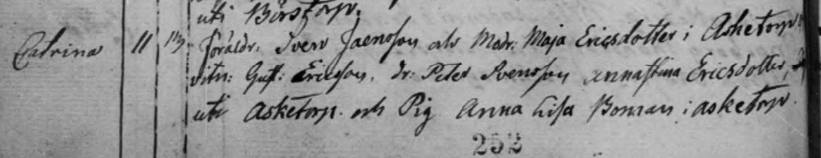 uti Börstorp.
Catrina 11 13 Föräldr: Sven Jaensson och Modr: Maja Ericsdotter i Asketorp.
vitn: Gust: Ericsson, dr: Peter Svensson Annastina Ericsdotter,
uti Asketorp. och Pig Anna Lisa Boman i asketorp.
252